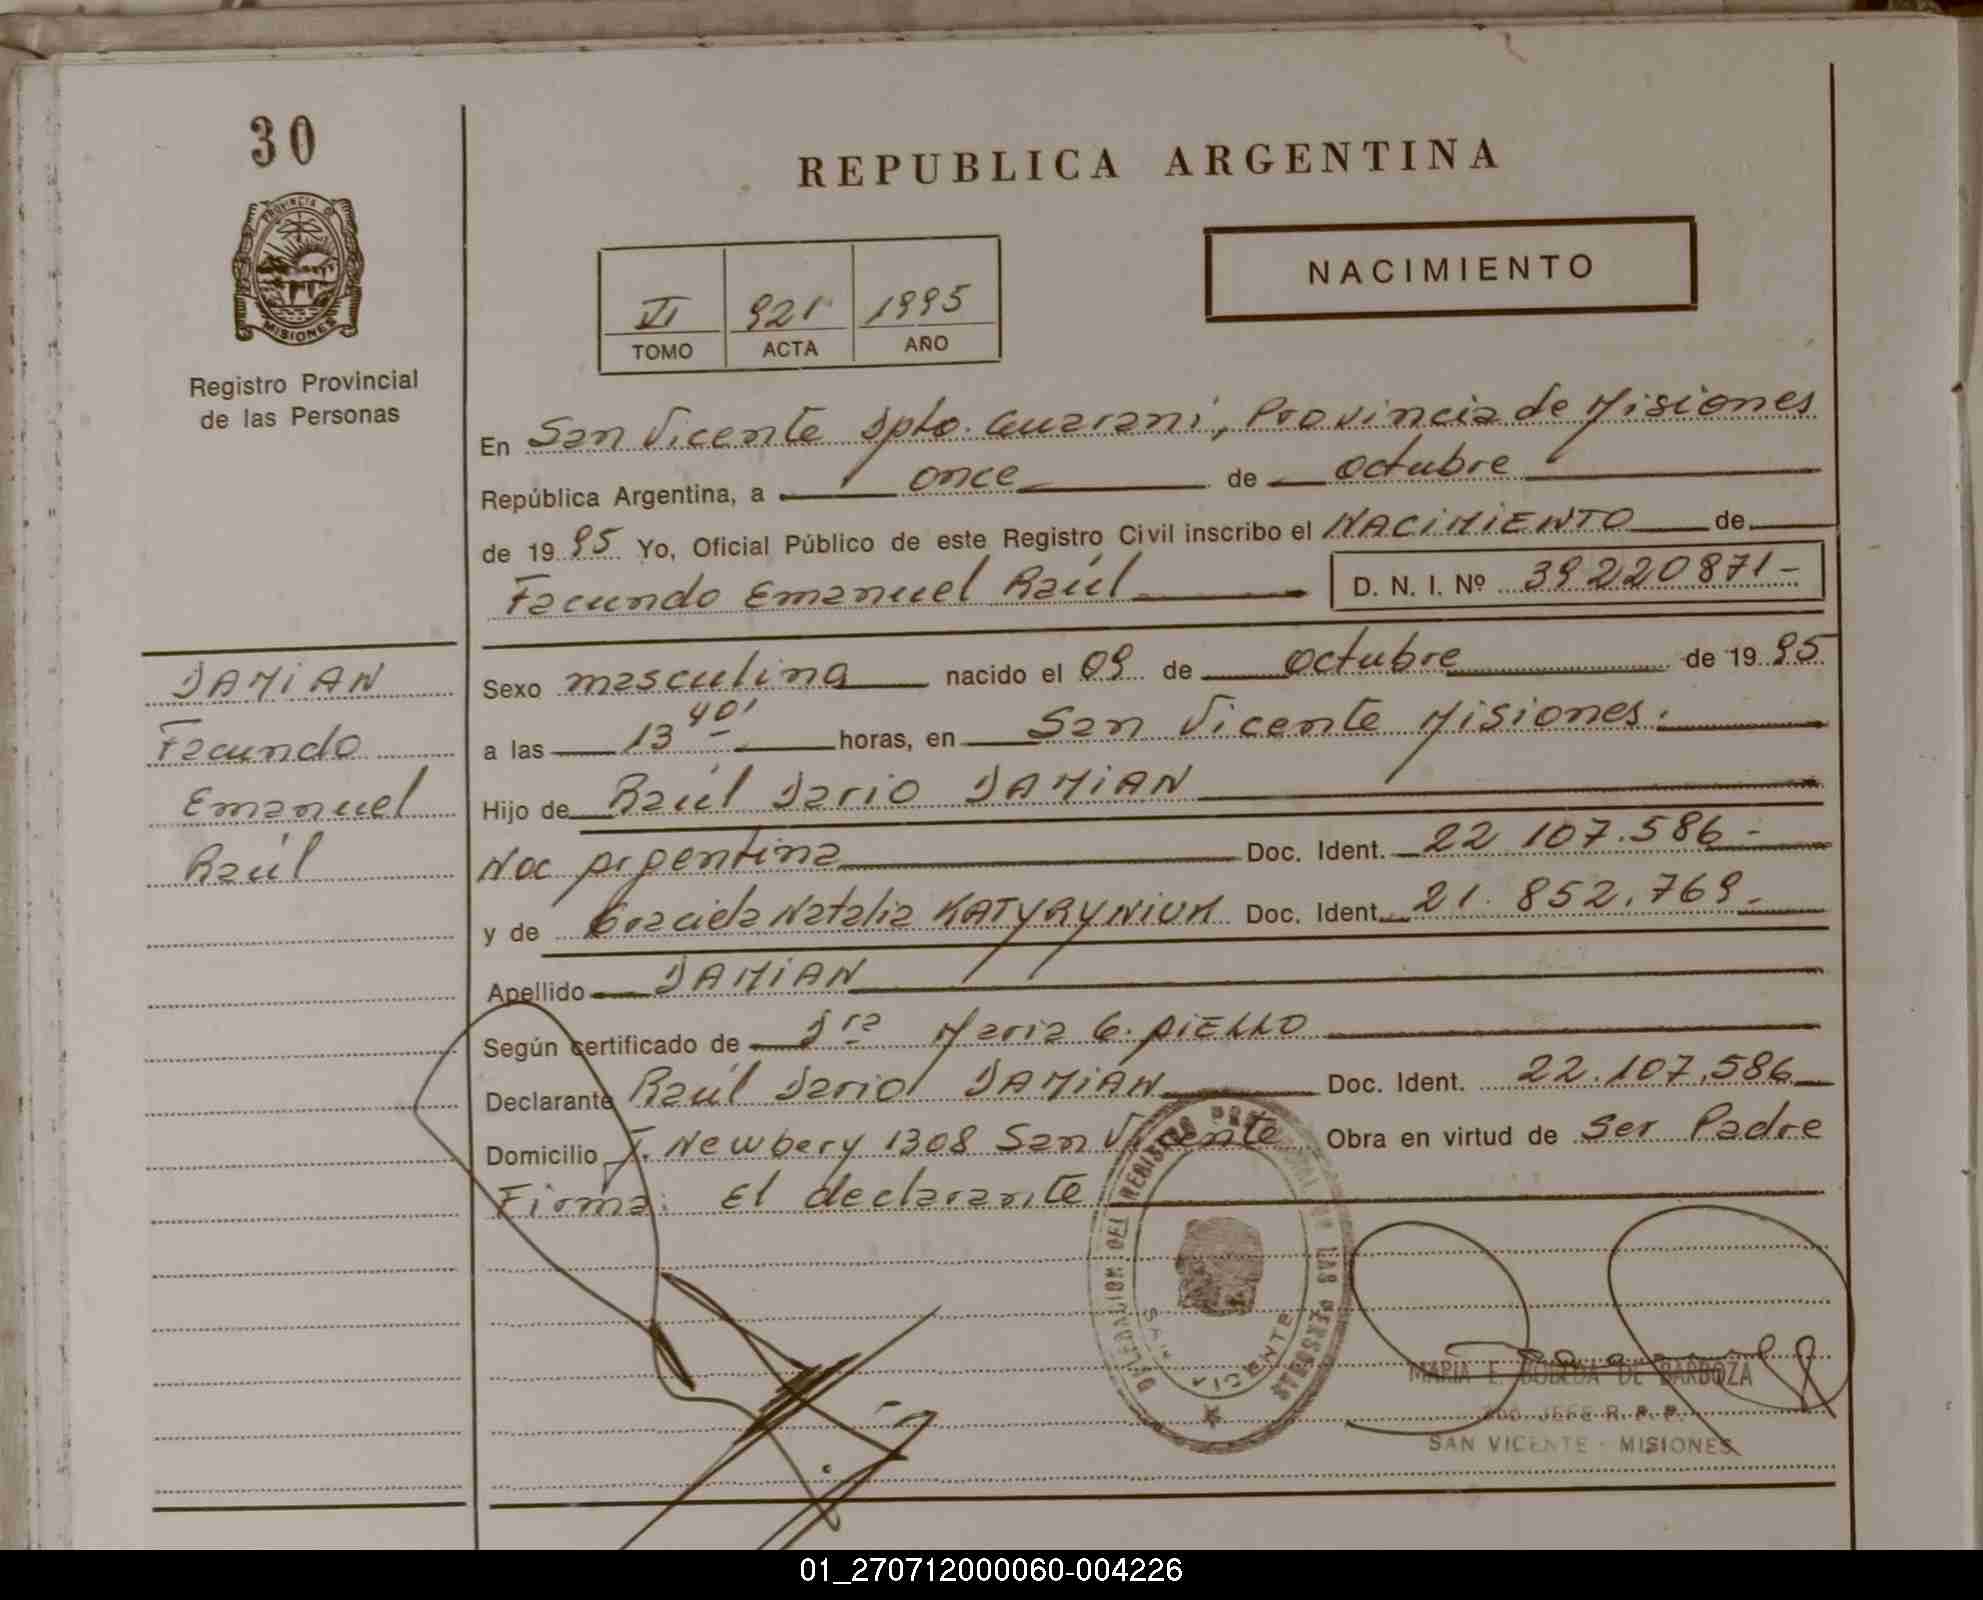 30
PROVINCIA DE
MISIONES
Registro Provincial
de las Personas
DAMIAN
Facundo
Emanuel
Raúl
REPUBLICA ARGENTINA
NACIMIENTO
VI 921 1995
TOMO ACTA AÑO
En San Vicente Dpto. Guarani, Provincia de Misiones
República Argentina, a once de octubre
de 19 95 Yo, Oficial Público de este Registro Civil inscribo el NACIMIENTO de
Facundo Emanuel Raúl D. N. I. Nº 39220871-
Sexo masculino nacido el 09 de octubre de 19 95
a las 13 40' horas, en San Vicente Misiones.
Hijo de Raúl Dario DAMIAN
Nac argentina Doc. Ident. 22 107.586-
y de Graciela Natalia KATYRYNIUK Doc. Ident. 21. 852.769-
Apellido DAMIAN
Según certificado de Dra Maria G. AIELLO
Declarante Raúl Dario DAMIAN Doc. Ident. 22.107.586
Domicilio J. Newbery 1308 San Vicente Obra en virtud de Ser Padre
Firma: El declarante
DELEGACION DEL REGISTRO PROVINCIAL DE LAS PERSONAS
SAN VICENTE
MARIA E. DE BARBOZA
JEFE R. P. P.
SAN VICENTE - MISIONES
01_270712000060-004226